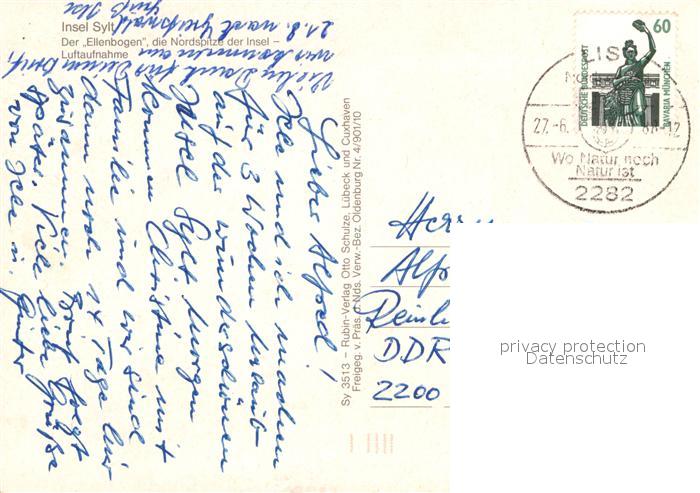 Insel Sylt
Der „Ellenbogen", die Nordspitze der Insel –
Luftaufnahme
Vielen Dank für Deinen Brief,
wir kommen am
21.8. nach Greifswald
Gruß Ilse
Lieber Alfred!
Ilse und ich machen
für 3 Wochen Urlaub
auf der wunderschönen
Insel Sylt. Morgen
kommen Christine mit
Familie und wir sind
dann noch 14 Tage hier
zusammen. Brief folgt
später. Viele liebe Grüße
von Ilse u. Günter
Sy 3513 – Rubin-Verlag Otto Schulze, Lübeck und Cuxhaven
Freigeg. v. Präs. d. Nds. Verw.-Bez. Oldenburg Nr. 4/901/10
60
DEUTSCHE BUNDESPOST
BAVARIA MÜNCHEN
LIS
27.-6.
-12
Wo Natur noch
Natur ist
2282
Her
Alf
Reinb
DDR
2200
privacy protection
Datenschutz